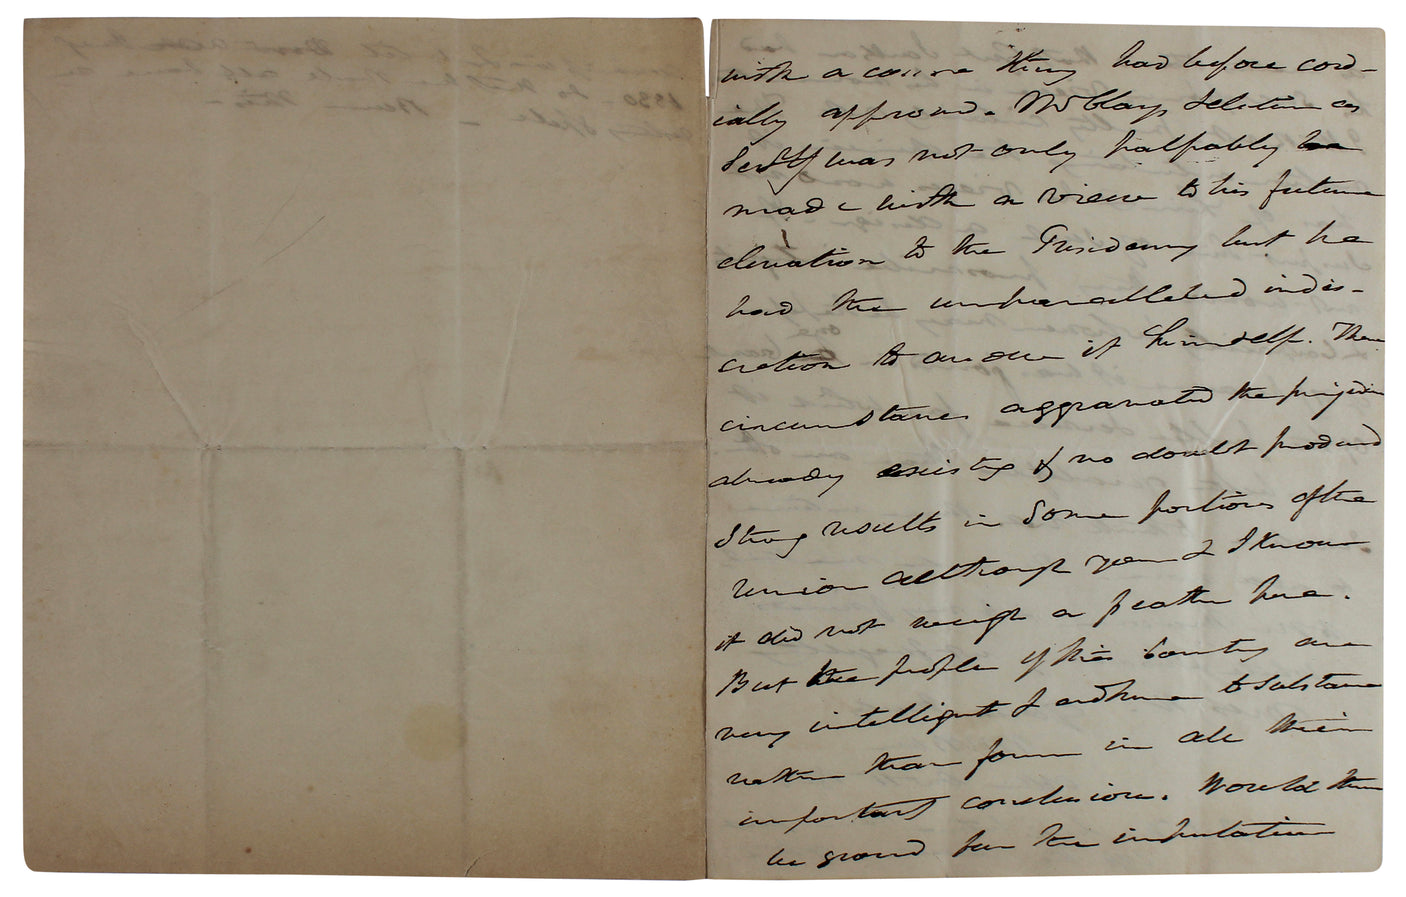 with a course they had before cord-
ially approved. Mr Clay's selection as
Secty was not only palpably
made with a view to his future
elevation to the Presidency but he
had the unparalleled indis-
cretion to avow it himself. These
circumstances aggravated the prejudices
already existing & no doubt produced
strong results in some portions of the
Union although you & I know
it did not weigh a feather here.
But the people of this County are
very intelligent & adhere to substance
rather than form in all their
important conclusions. Would there
be ground for the imputation